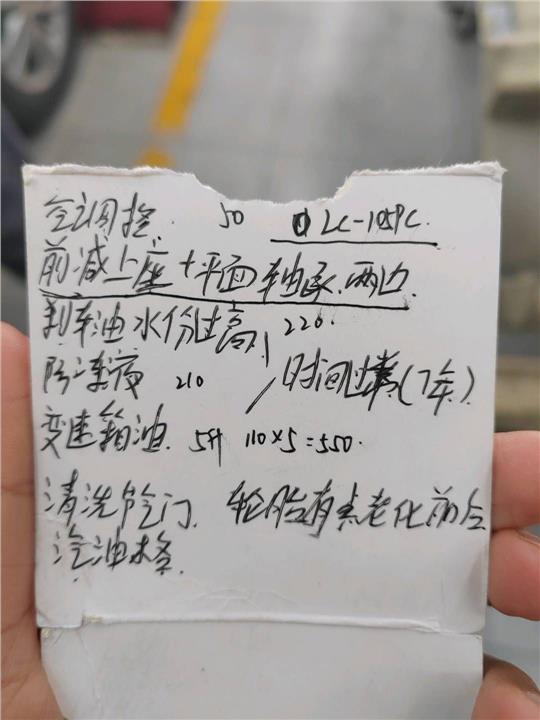 空调格 50 LC-1059C
前减上座+平面轴承.两边
刹车油水份过高! 220.
防冻液 210 时间过(7年)
变速箱油. 5升 110×5=550.
清洗节门. 轮胎有点老化
汽油格.